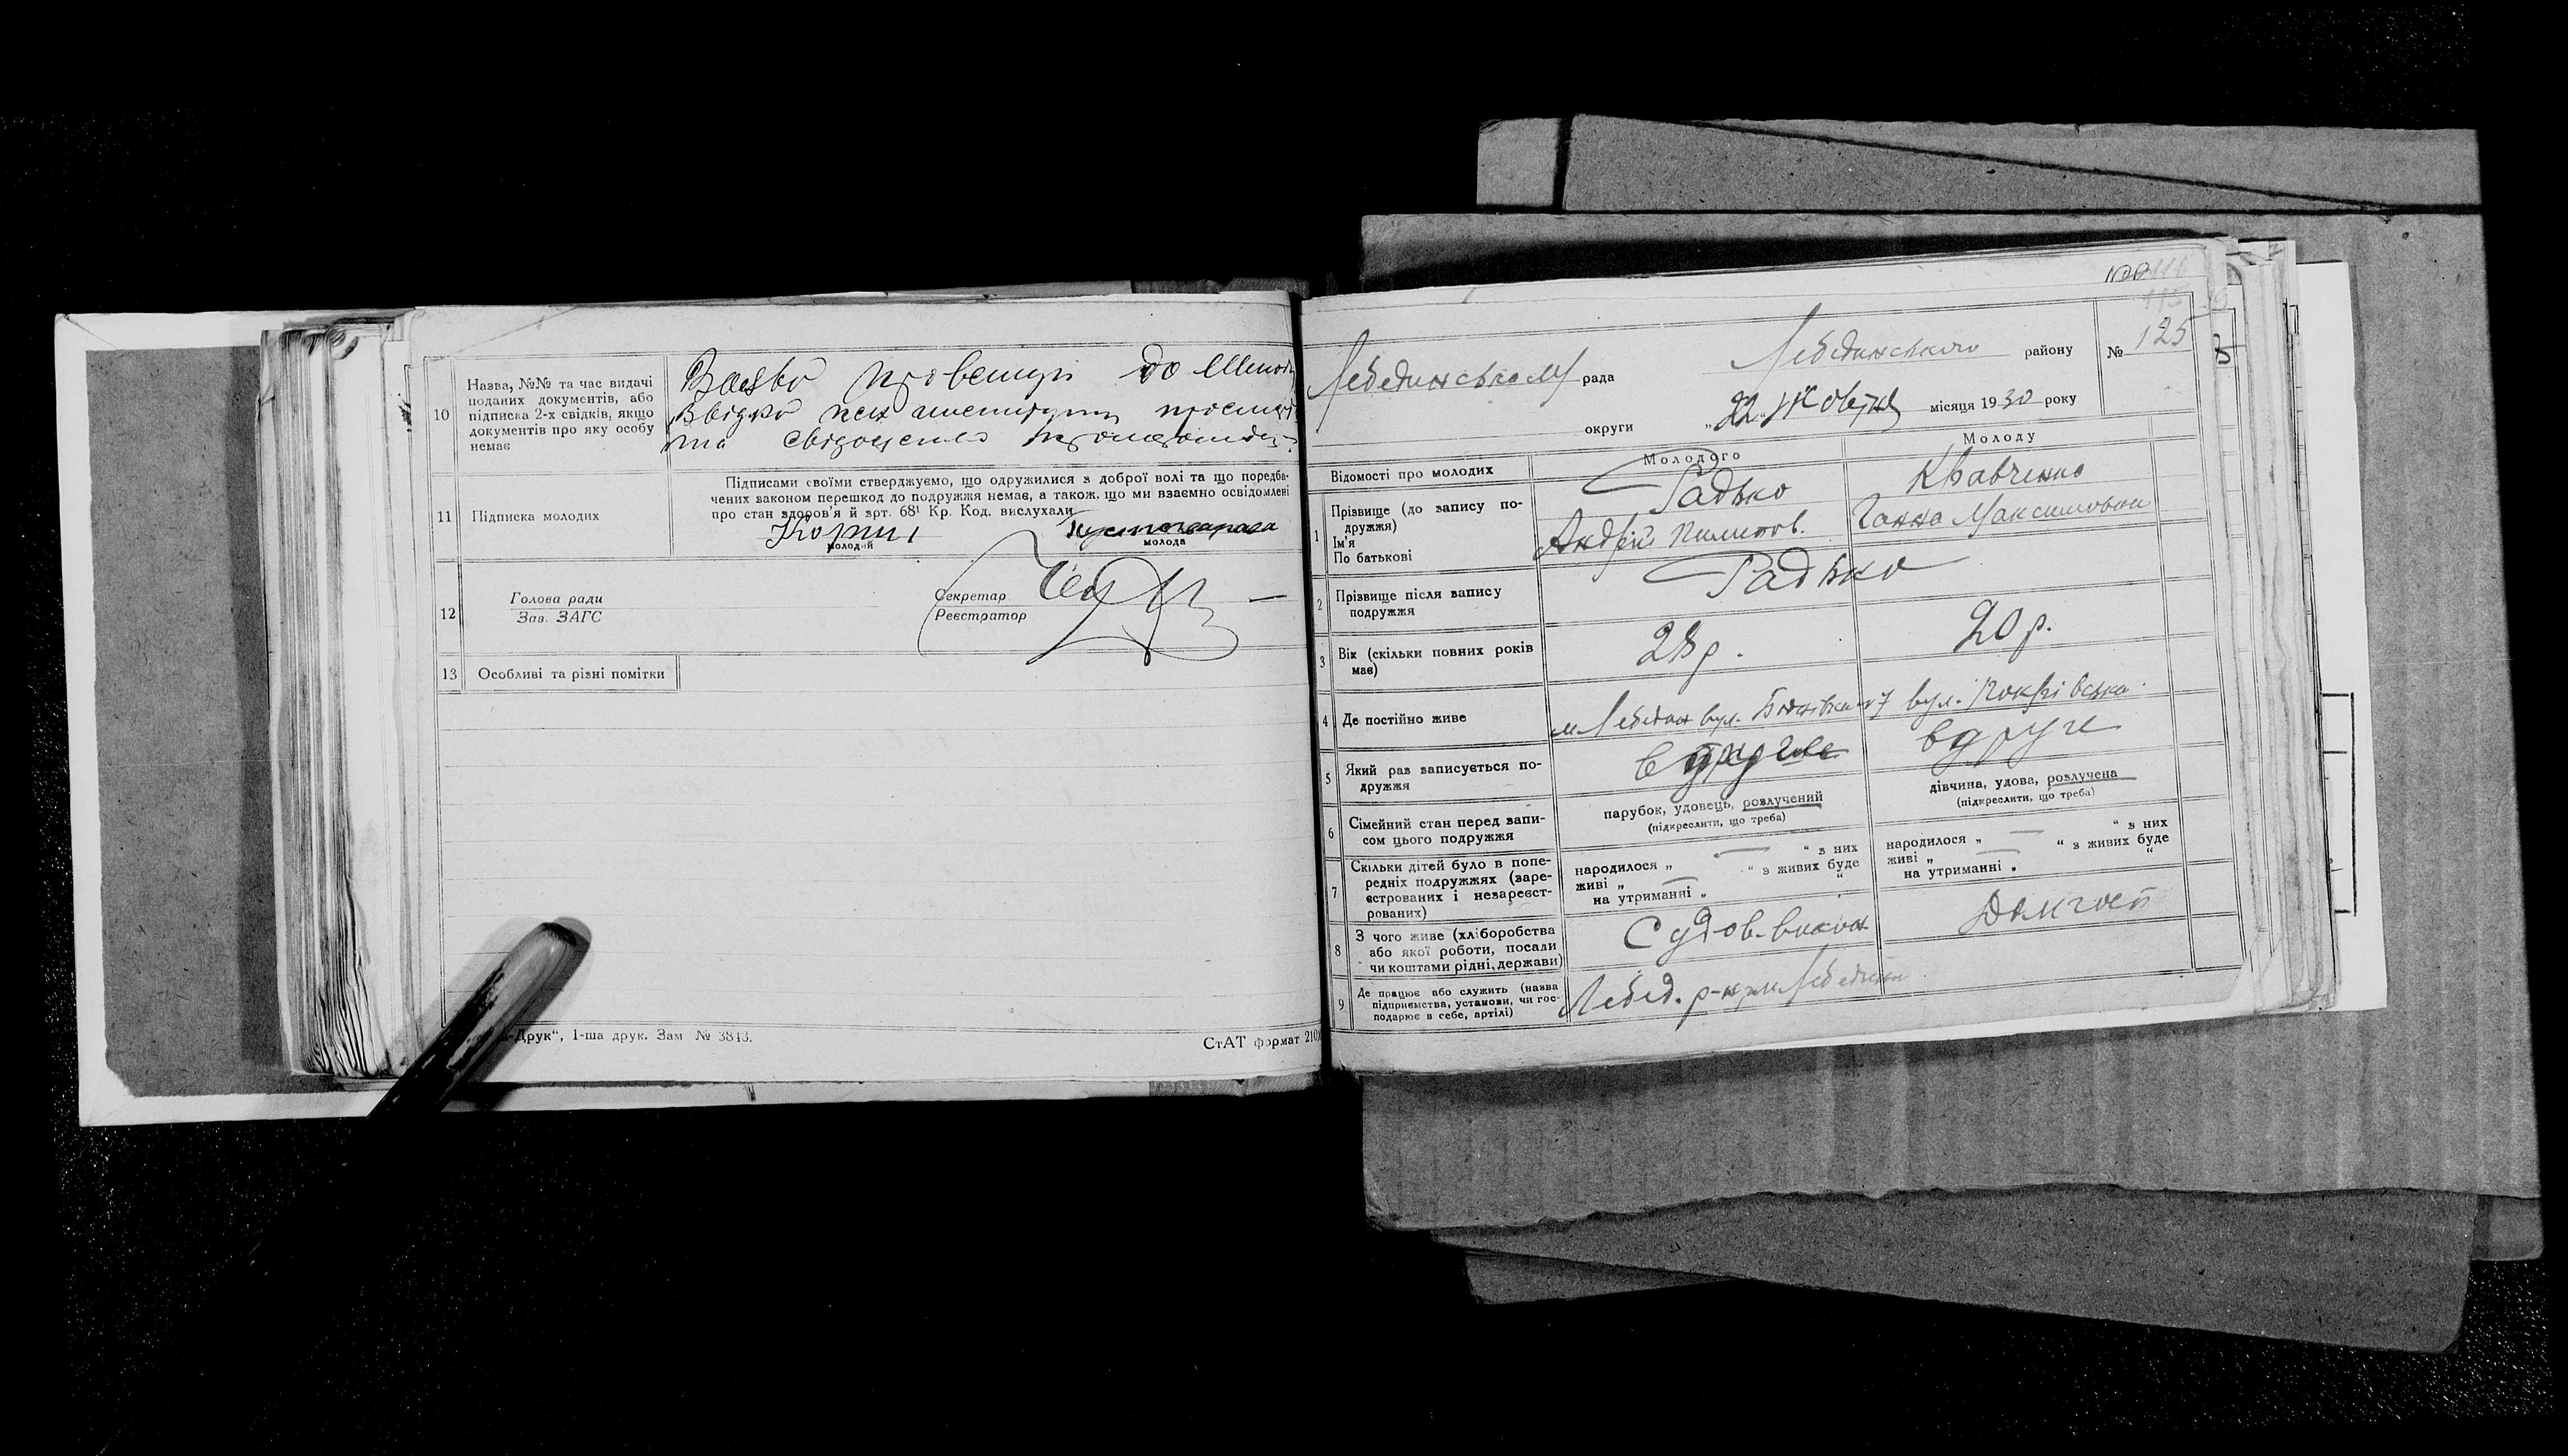 10
Назва, №№ та час видачі
поданих документів, або
підписка 2-х свідків, якщо
документів про яку особу
немає
до
та
11
Підписка молодих
Підписами своїми стверджуємо, що одружилися з доброї волі та що поредба-
чених законом перешкод до подружжя немає, а також, що ми взаємно освідомлені
про стан здоров'я й зрт. 68¹ Кр. Код. вислухали
молодий
молода
12
Голова ради
Зав. ЗАГС
Секретар
Реєстратор
13
Особливі та різні помітки
-Друк“, 1-ша друк. Зам № 3813.
СтАТ формат 210
Лебединська М рада
Лебединського району
№ 125
округи
„22“ Жовтня місяця 1930 року
Відомості про молодих
Молодого
Молоду
1
Прізвище (до запису по-
дружжя)
Ім'я
По батькові
Радько
Андрій Пилипов.
Кравченко
Ганна Максимовна
2
Прізвище після запису
подружжя
Радько
3
Вік (скільки повних років
має)
28 р.
20 р.
4
Де постійно живе
м Лебедин вул.
вул. Покрівська.
5
Який раз записується по-
дружжя
вдруге
вдруге
6
Сімейний стан перед запи-
сом цього подружжя
парубок, удовець, розлучений
(підкреслити, що треба)
дівчина, удова, розлучена
(підкреслити, що треба)
7
Скільки дітей було в попе-
редніх подружжях (заре-
єстрованих і незареєст-
рованих)
народилося „ — “ з них
живі „ — “ з живих буде
на утриманні „ “
народилося „ — “ з них
живі „ — “ з живих буде
на утриманні „ “
8
З чого живе (хліборобства
або якої роботи, посади
чи коштами рідні, держави)
Судов. викон.
Домгосп
9
Де працює або служить (назва
підприємства, установи, чи гос-
подарює в себе, артілі)
Лебед.